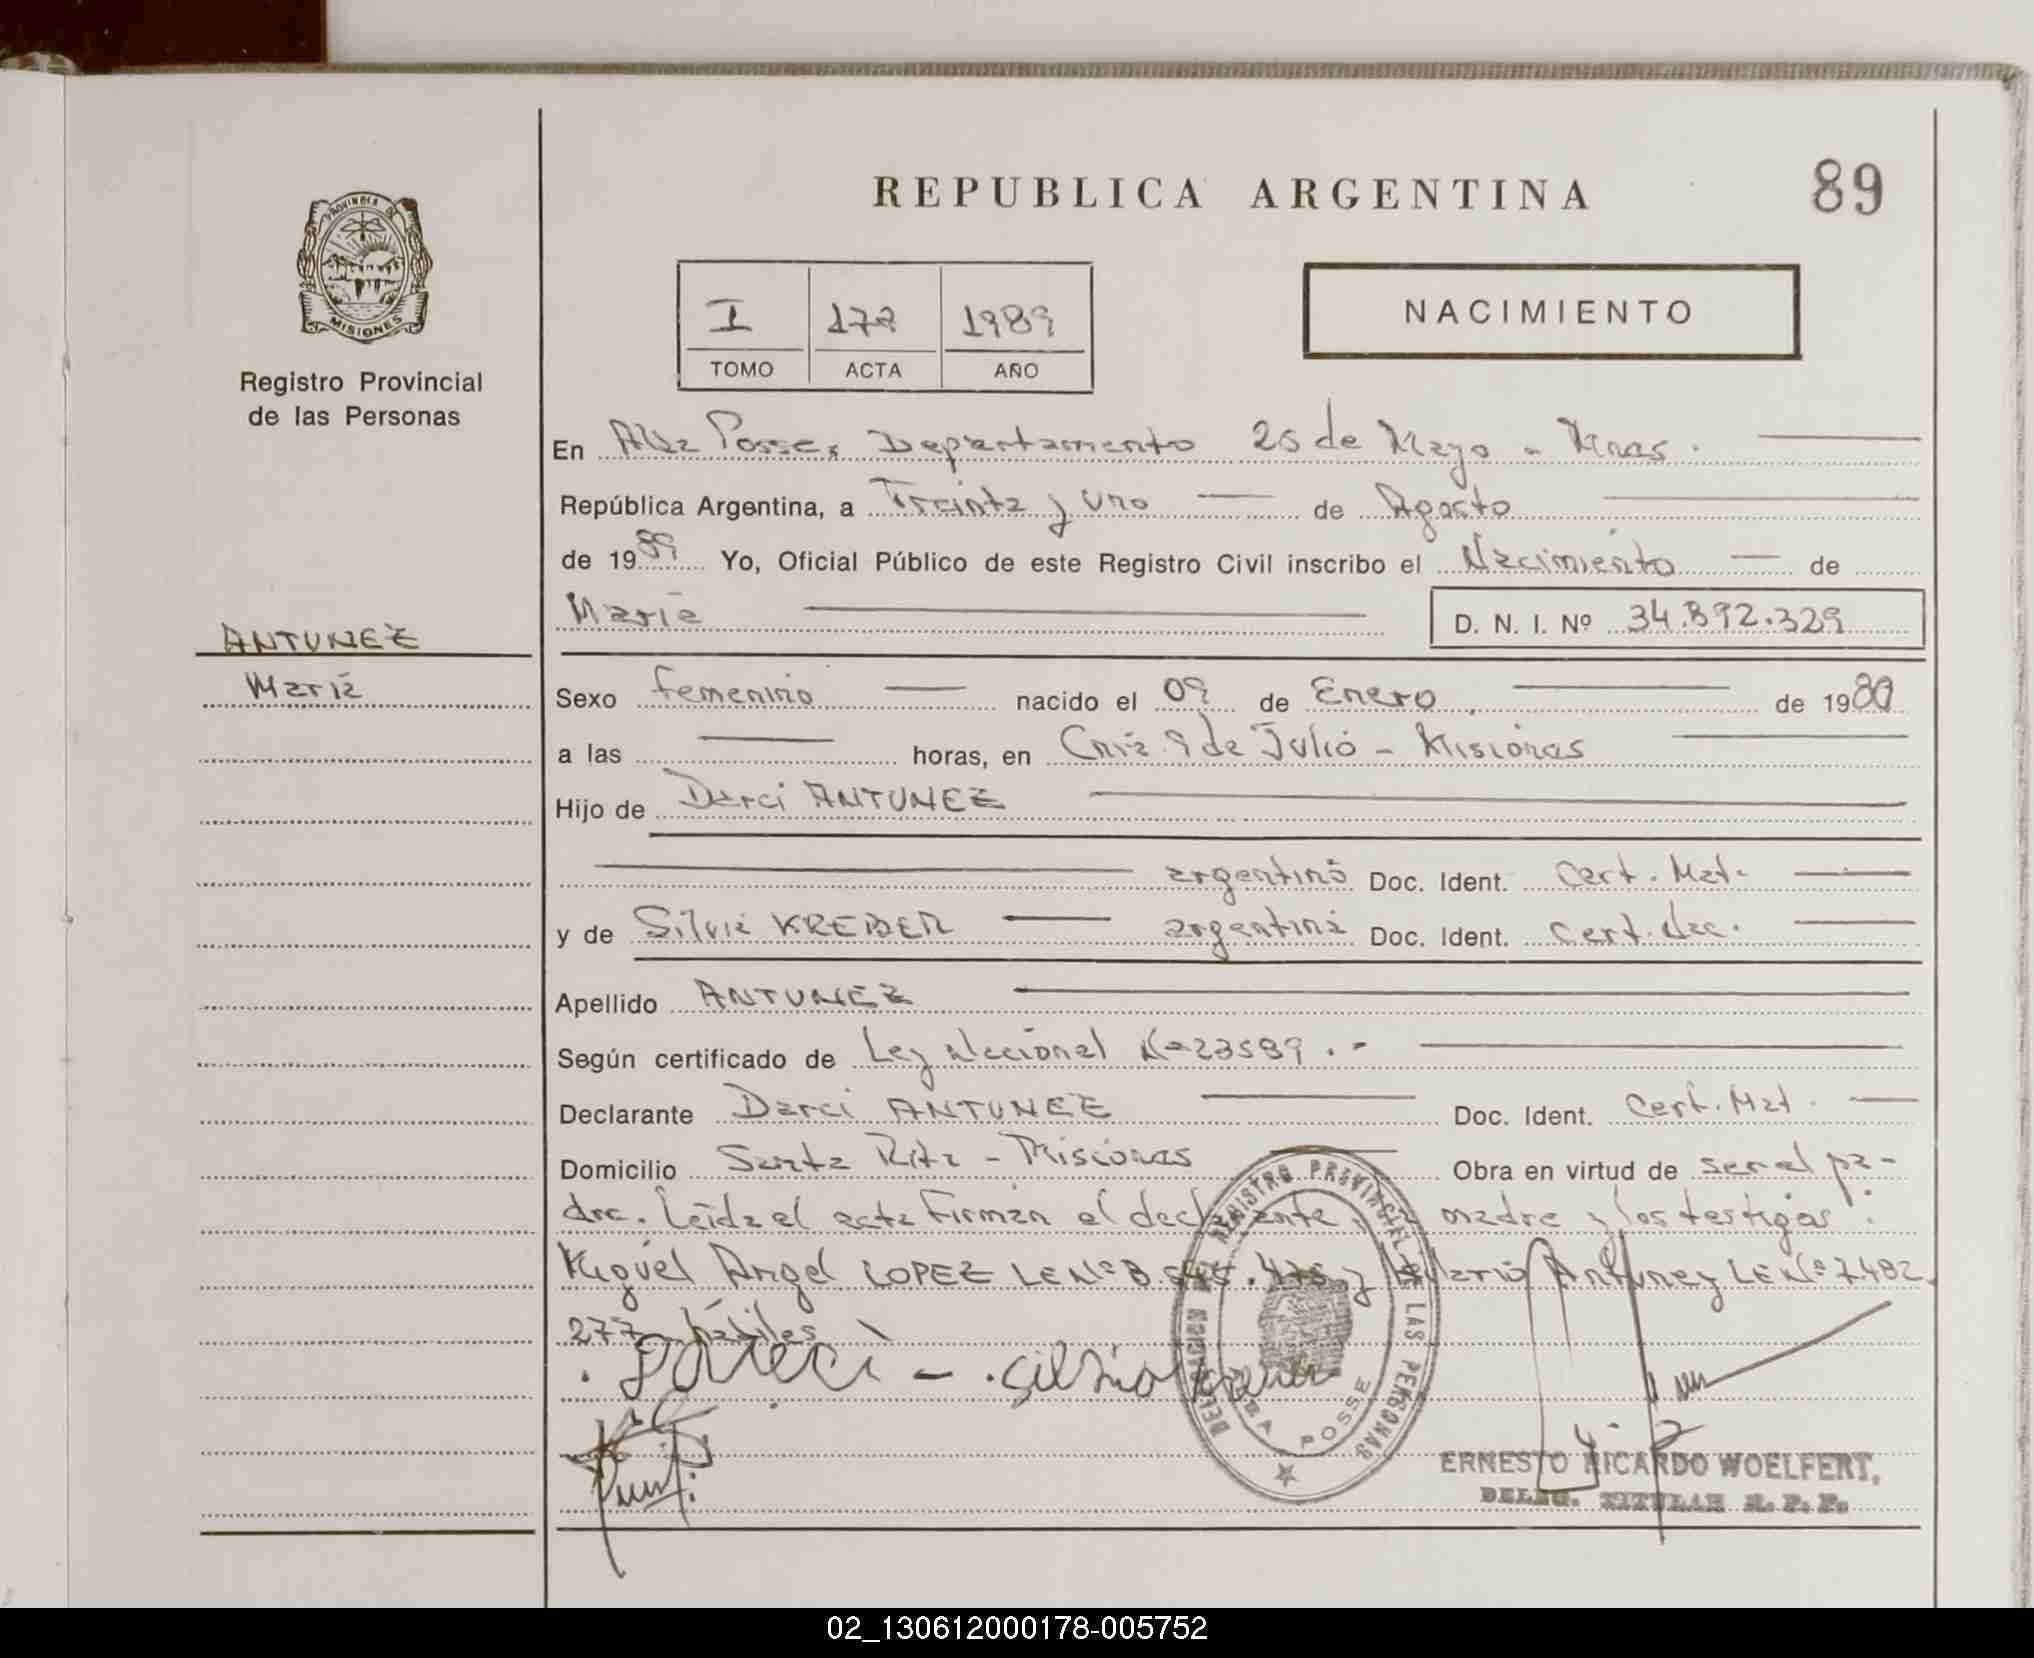 REPUBLICA ARGENTINA
89
PROVINCIA DE
MISIONES
Registro Provincial
de las Personas
NACIMIENTO
I 1989
TOMO ACTA AÑO
En Alba Posse, Departamento 25 de Mayo - Mnas.
República Argentina, a Treinta y Uno de Agosto
de 1989 Yo, Oficial Público de este Registro Civil inscribo el Nacimiento de
Maria D. N. I. Nº 34.892.329
ANTUNEZ
Maria
Sexo femenino nacido el 09 de Enero de 19
a las horas, en Cnia. 9 de Julio - Misiones
Hijo de Darci ANTUNEZ
argentino Doc. Ident. Cert. Mat.
y de Silvia KREBER argentina Doc. Ident. Cert. Nac.
Apellido ANTUNEZ
Según certificado de Ley Nacional Nº 23589.-
Declarante Darci ANTUNEZ Doc. Ident. Cert. Mat.
Domicilio Santa Rita - Misiones Obra en virtud de ser el pa-
dre. Leída el acta firman el declarante, madre y los testigos:
Miguel Angel LOPEZ LE Nº 8. .475 y Antunez LE Nº 7.482.
277 - hábiles
Darci - Silvia
REGISTRO PROVINCIAL DE LAS PERSONAS
ALBA POSSE
ERNESTO RICARDO WOELFERT,
DELEG. TITULAR R. P. P.
02_130612000178-005752